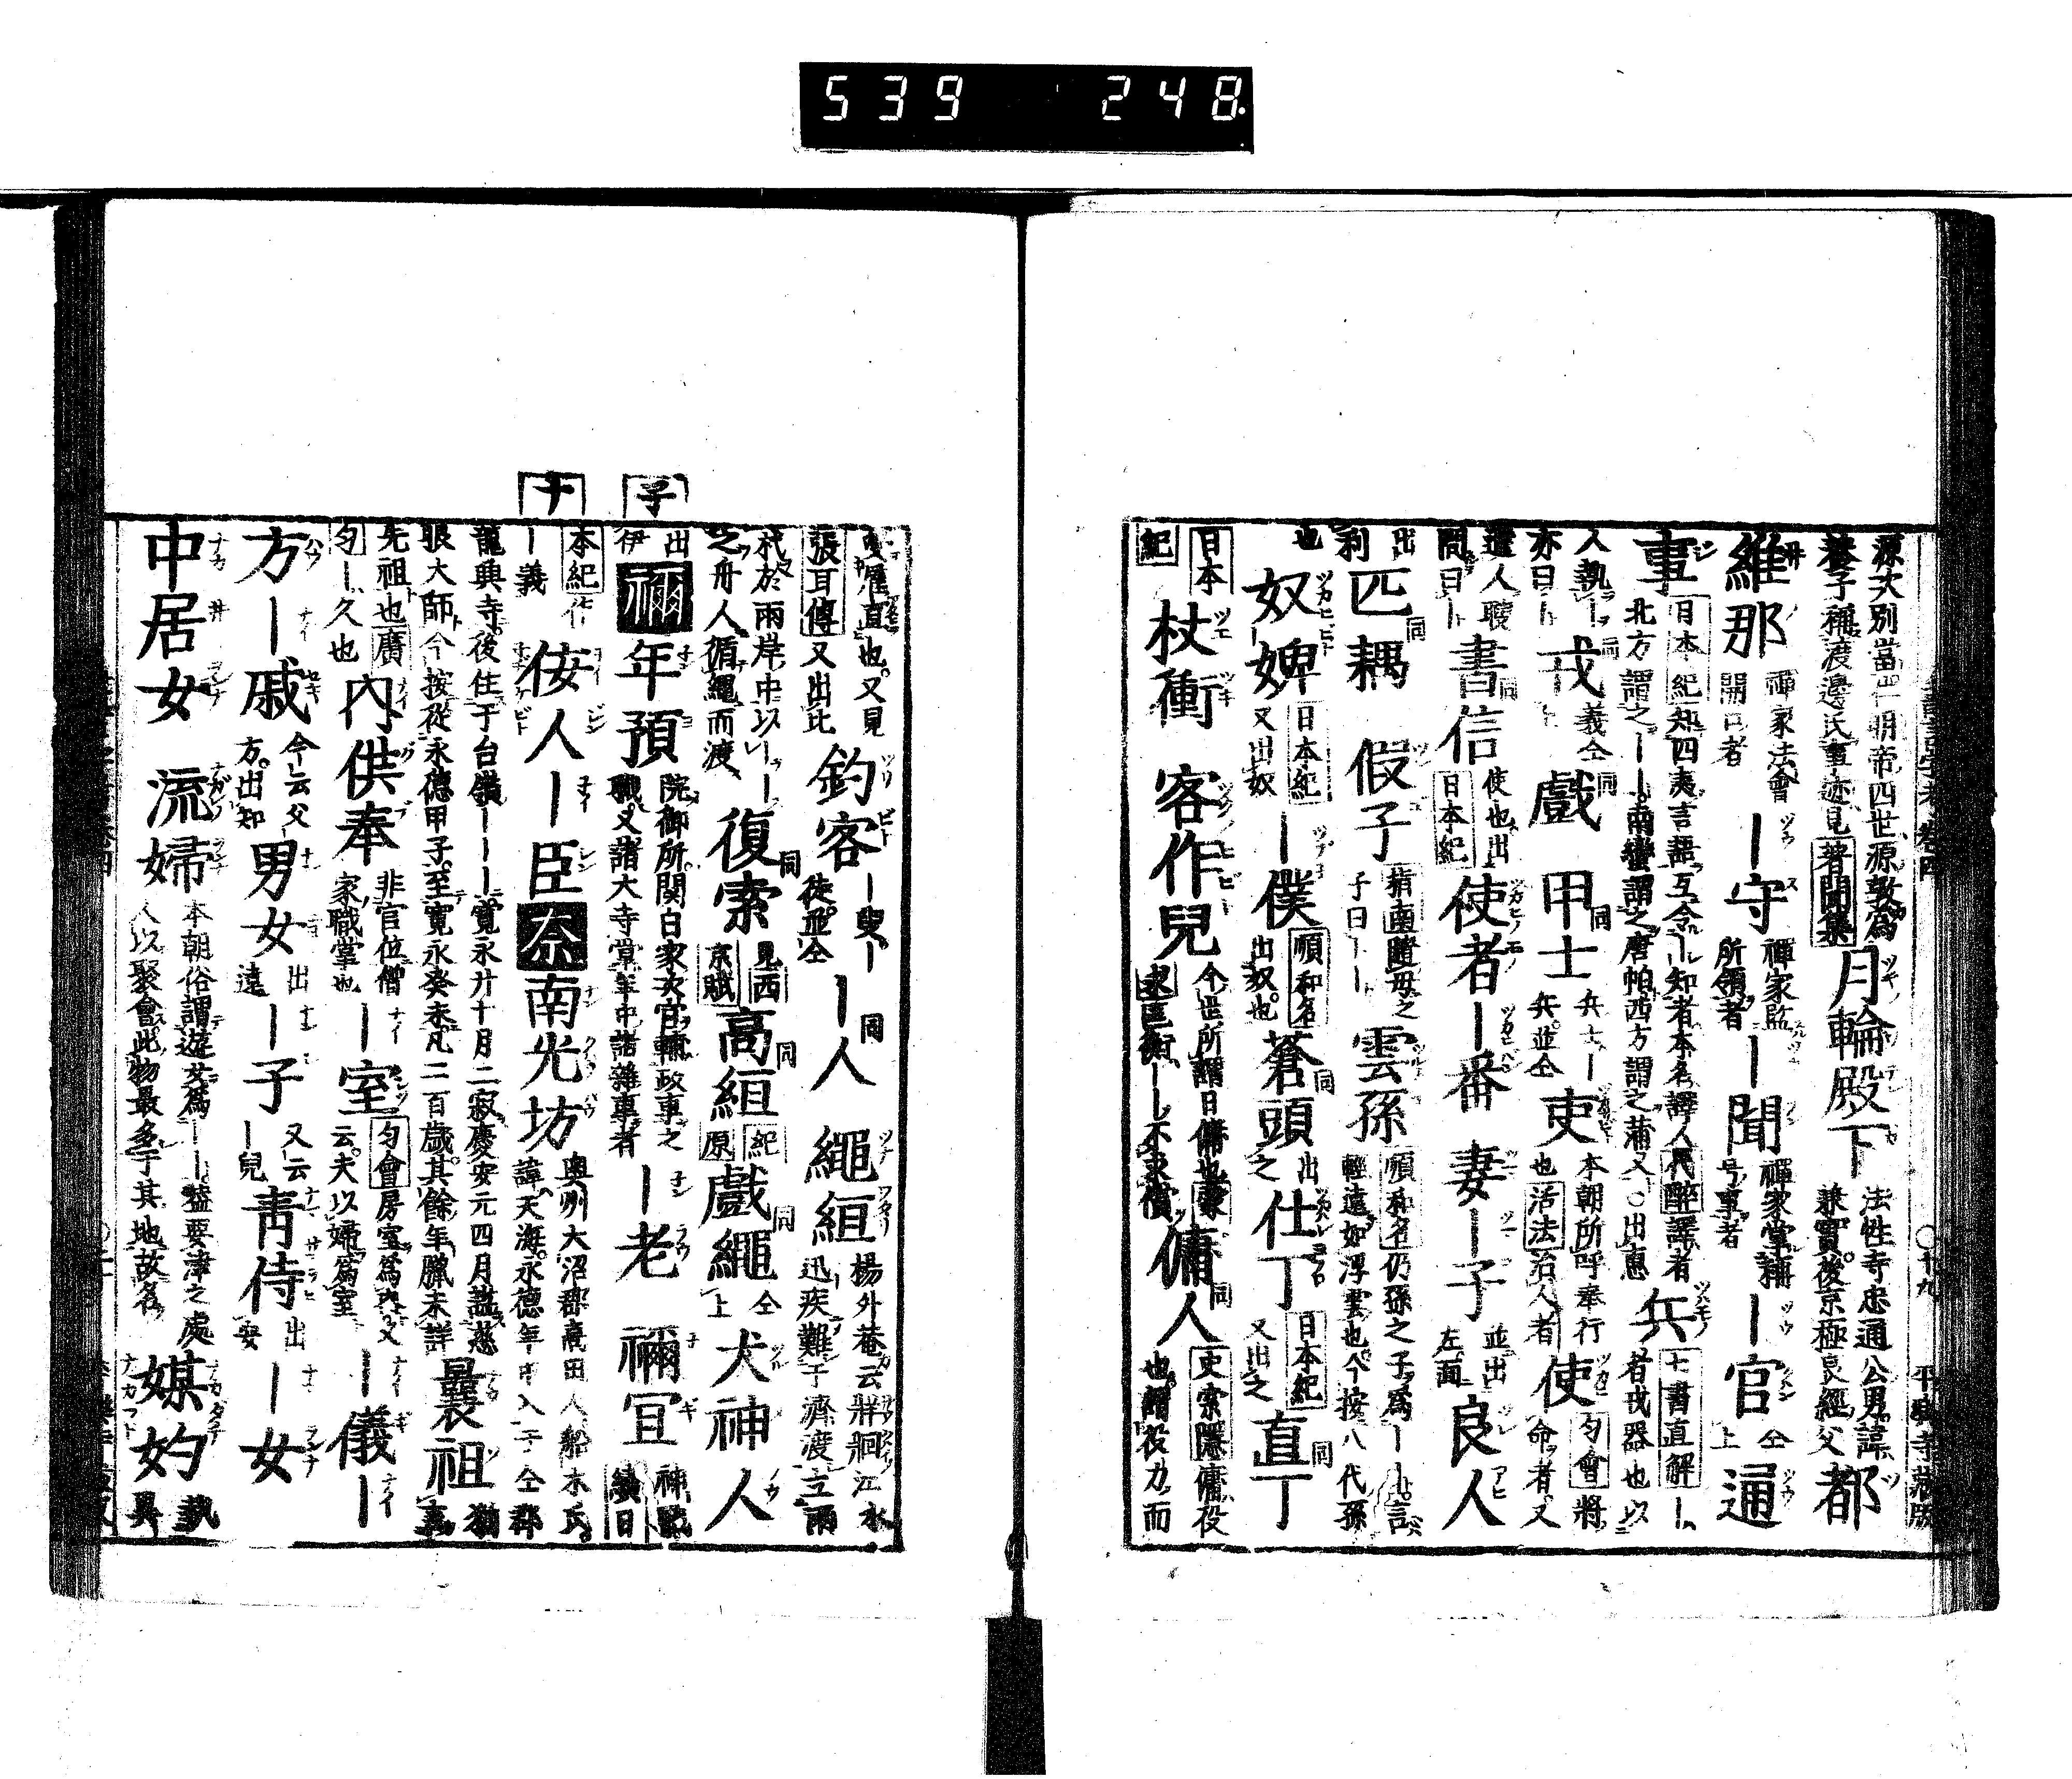 539 248
源次別當當明帝四世源敦爲
養子稱渡邊氏事迹見著聞集
月輪殿下 法性寺忠通公男諱
兼實後京極良經父 都
維那 禪家法會
開口者 ー守 禪家監
所領者 ー聞 禪家掌補
号事者 ー官 仝上 通
事 日本紀知四夷言語互令ー知者本名譯人代醉譯者
北方謂之ーー南蠻謂之唐帕西方謂之蒲又○出惠 兵 七書直解ー
者戎器也以
人執ー
亦曰ー 戎 義仝 戲 同 甲士 同 兵士ー
兵並仝 吏 本朝所呼奉行
也活法治人者 使 匀會將
命者又
遣人聘
問曰ー 書信 同 使也出
日本紀 使者 ー番 妻ー子 並出
左面 良人
出
利 匹耦 同 假子 指南隨母之
子曰ーー 雲孫 順和名仍孫之子爲ーー言
輕遠如浮雲也今按八代孫
也 奴婢 日本紀
又出奴 ー僕 順和名
出奴也 蒼頭 同 出
之 仕丁 日本紀
又出之 直丁 同
日本
紀 杖衝 客作兒 今世所謂日傭也
匡衡ーー不求價 傭人 同 史索隱傭役
也謂役力而
雇直也又見
張耳傳又出比 釣客 ー叟ー
徒並仝 ー人 同 繩絙 楊外菴云 江水
迅疾難于濟渡立兩
杙於兩岸中以ーー
之舟人循繩而渡 復索 同 見西
京賦 高絙 同 紀
原 戲繩 同 仝
上 犬神人
子
出
伊 禰 年預 院御所関白家次官輔政事之
職又諸大寺當年中諸雜事者 ー老 禰宜 神職
續日
ナ
本紀作
ー義 侫人 ー臣 奈 南光坊 奥州大沼郡高田人船木氏
諱天海永德年中入于仝郡
龍興寺後住于台嶺ーーー寛永廿十月二寂慶安元四月謚慈
眼大師今按從永德甲子至寛永癸未凡二百歲其餘年臘未詳 曩祖 猶
先祖也廣
匀ー久也 內供奉 非官位僧
家職掌也 ー室 匀會房室爲內又
云夫以婦爲室 ー儀ー
方ー戚 今云父
方出知 男女 出
遠 ー子 又云
ー兒 靑侍 出
安 ー女
中居女 流婦 本朝俗謂遊女爲ーー蓋要津之處
人以聚會此物最多于其地故名 媒妁